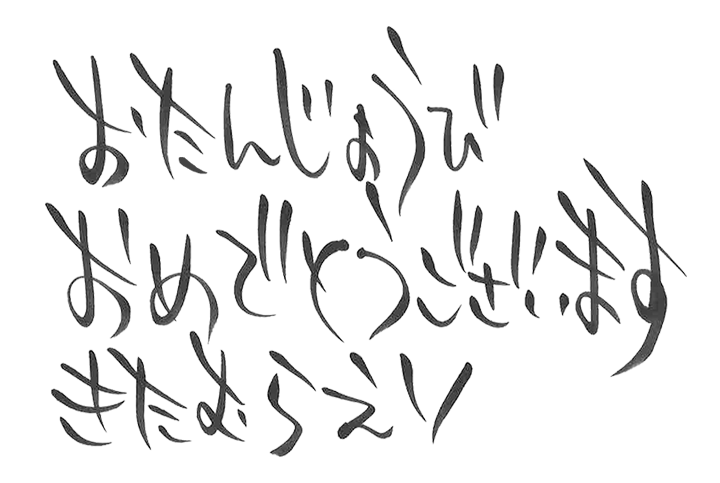 おたんじょうび
おめでとうございます
きたむらえり